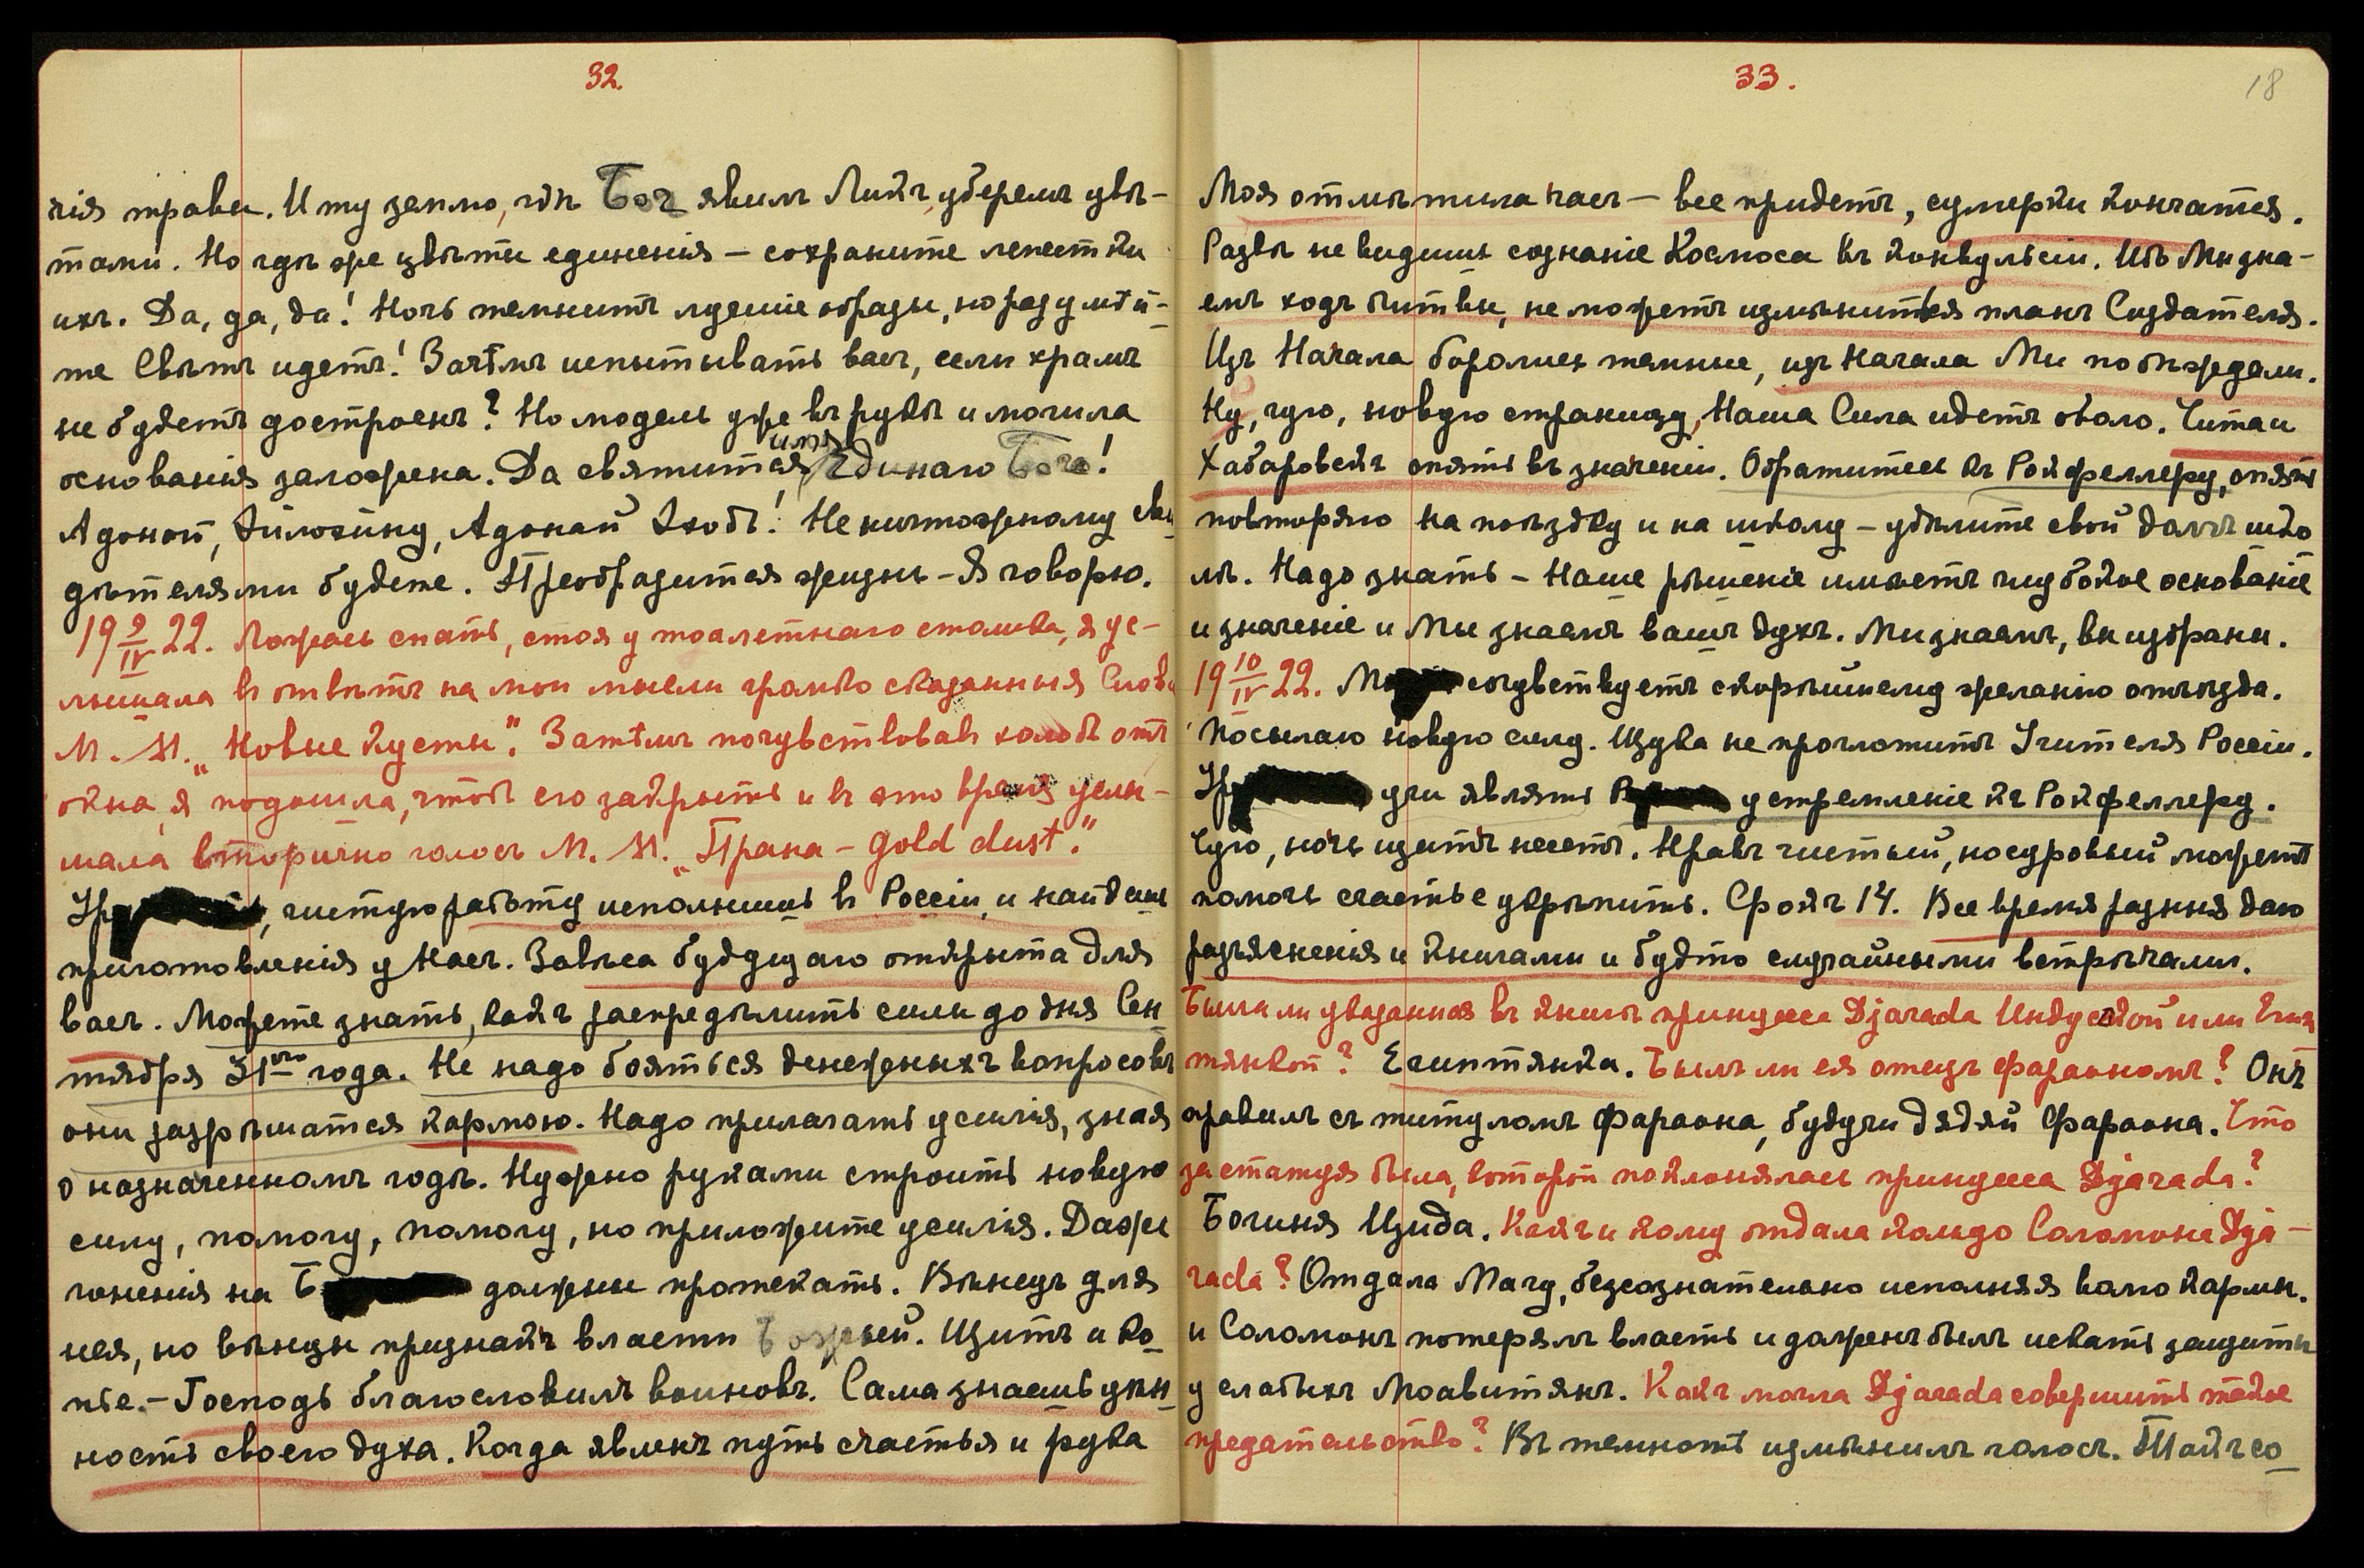 32.
чія травы. И ту землю, гдѣ Богъ явилъ Ликъ, уберемъ цвѣ-
тами. Но гдѣ же цвѣты единенія – сохраните лепестки
ихъ. Да, да, да! Ночь темнитъ лучшіе образы, но разумѣй-
те Свѣтъ идетъ! Зачѣмъ испытывать васъ, если храмъ
не будетъ достроенъ? Но модель уже въ рукѣ и могила
основанія заложена. Да святится имя Единаго Бога!
Адонай, Эйлохину, Адонай Эходъ! Не ничтожному сви
дѣтелями будете. Преобразится жизнь – Я говорю.
19 9/IV 22. Ложась спать, стоя у тоалетнаго столика, я ус-
лышала въ отвѣтъ на мои мысли громко сказанныя Слова
М. М. „Новые кусты". Затѣмъ почувствовавъ холодъ отъ
окна, я подошла, чтобъ его закрыть и въ это время услы-
шала вторично голосъ М. М. „Прана – gold dust."
Ур, чистую работу исполнишь въ Россіи, и найдешь
приготовленія у Насъ. Завѣса будущаго открыта для
васъ. Можете знать, какъ распредѣлить силы до дня Сен
тября 31го года. Не надо бояться денежныхъ вопросовъ
они разрѣшатся кармою. Надо прилагать усилія, зная
о назначенномъ годѣ. Нужно руками строить новую
силу, помогу, помогу, но приложите усилія. Даже
гоненія на Б должны протекать. Вѣнецъ для
нея, но вѣнцы признакъ власти Божьей. Щитъ и ко-
пье. – Господь благословилъ воиновъ. Сама знаешь цѣн-
ность своего духа. Когда явленъ путь счастья и рука
33.
18
Моя отмѣтила часъ – все придетъ, сумерки кончатся.
Развѣ не видишь сознаніе Космоса въ конвульсіи. Ибо Мы зна-
емъ ходъ битвы, не можетъ измѣниться планъ Создателя.
Изъ Начала боролись темные, изъ Начала Мы побѣждали.
Ну, чую, новую страницу, Наша Сила идетъ около. Читаи
Хабаровскъ опять въ значеніи. Обратитесь къ Рокфеллеру, опять
повторяю на поѣздку и на школу – удѣлите свой долгъ шко
лѣ. Надо знать – Наше рѣшеніе имѣетъ глубокое основаніе
и значеніе и Мы знаемъ вашъ духъ. Мы знаемъ, вы избраны.
19 10/IV 22. М сочувствуетъ скорѣйшему желанію отъѣзда.
Посылаю новую силу. Щука не проглотитъ Учителя Россіи.
Ур учи являть Р устремленіе къ Рокфеллеру.
Чую, ночь щитъ несетъ. Нравъ чистый, но суровый можетъ
помочь счастье укрѣпить. Срокъ 14. Все время разныя даю
разъясненія и книгами и будто случайными встрѣчами.
Была ли указанная въ книгѣ принцесса Djarada Индуской или Егип
тянкой? Египтянка. Былъ ли ея отецъ фараономъ? Онъ
правилъ съ титуломъ Фараона, будучи дядяй Фараона. Что
за статуя была, которой поклонялась принцесса Djarada?
Богиня Изида. Какъ и кому отдала кольцо Соломона Dja-
rada? Отдала Магу, безсознательно исполняя волю кармы.
и Соломонъ потерялъ власть и долженъ былъ искать защиты
у слабыхъ Моавитянъ. Какъ могла Djarada совершить такое
предательство? Въ темнотѣ измѣнилъ голосъ. Такъ со-